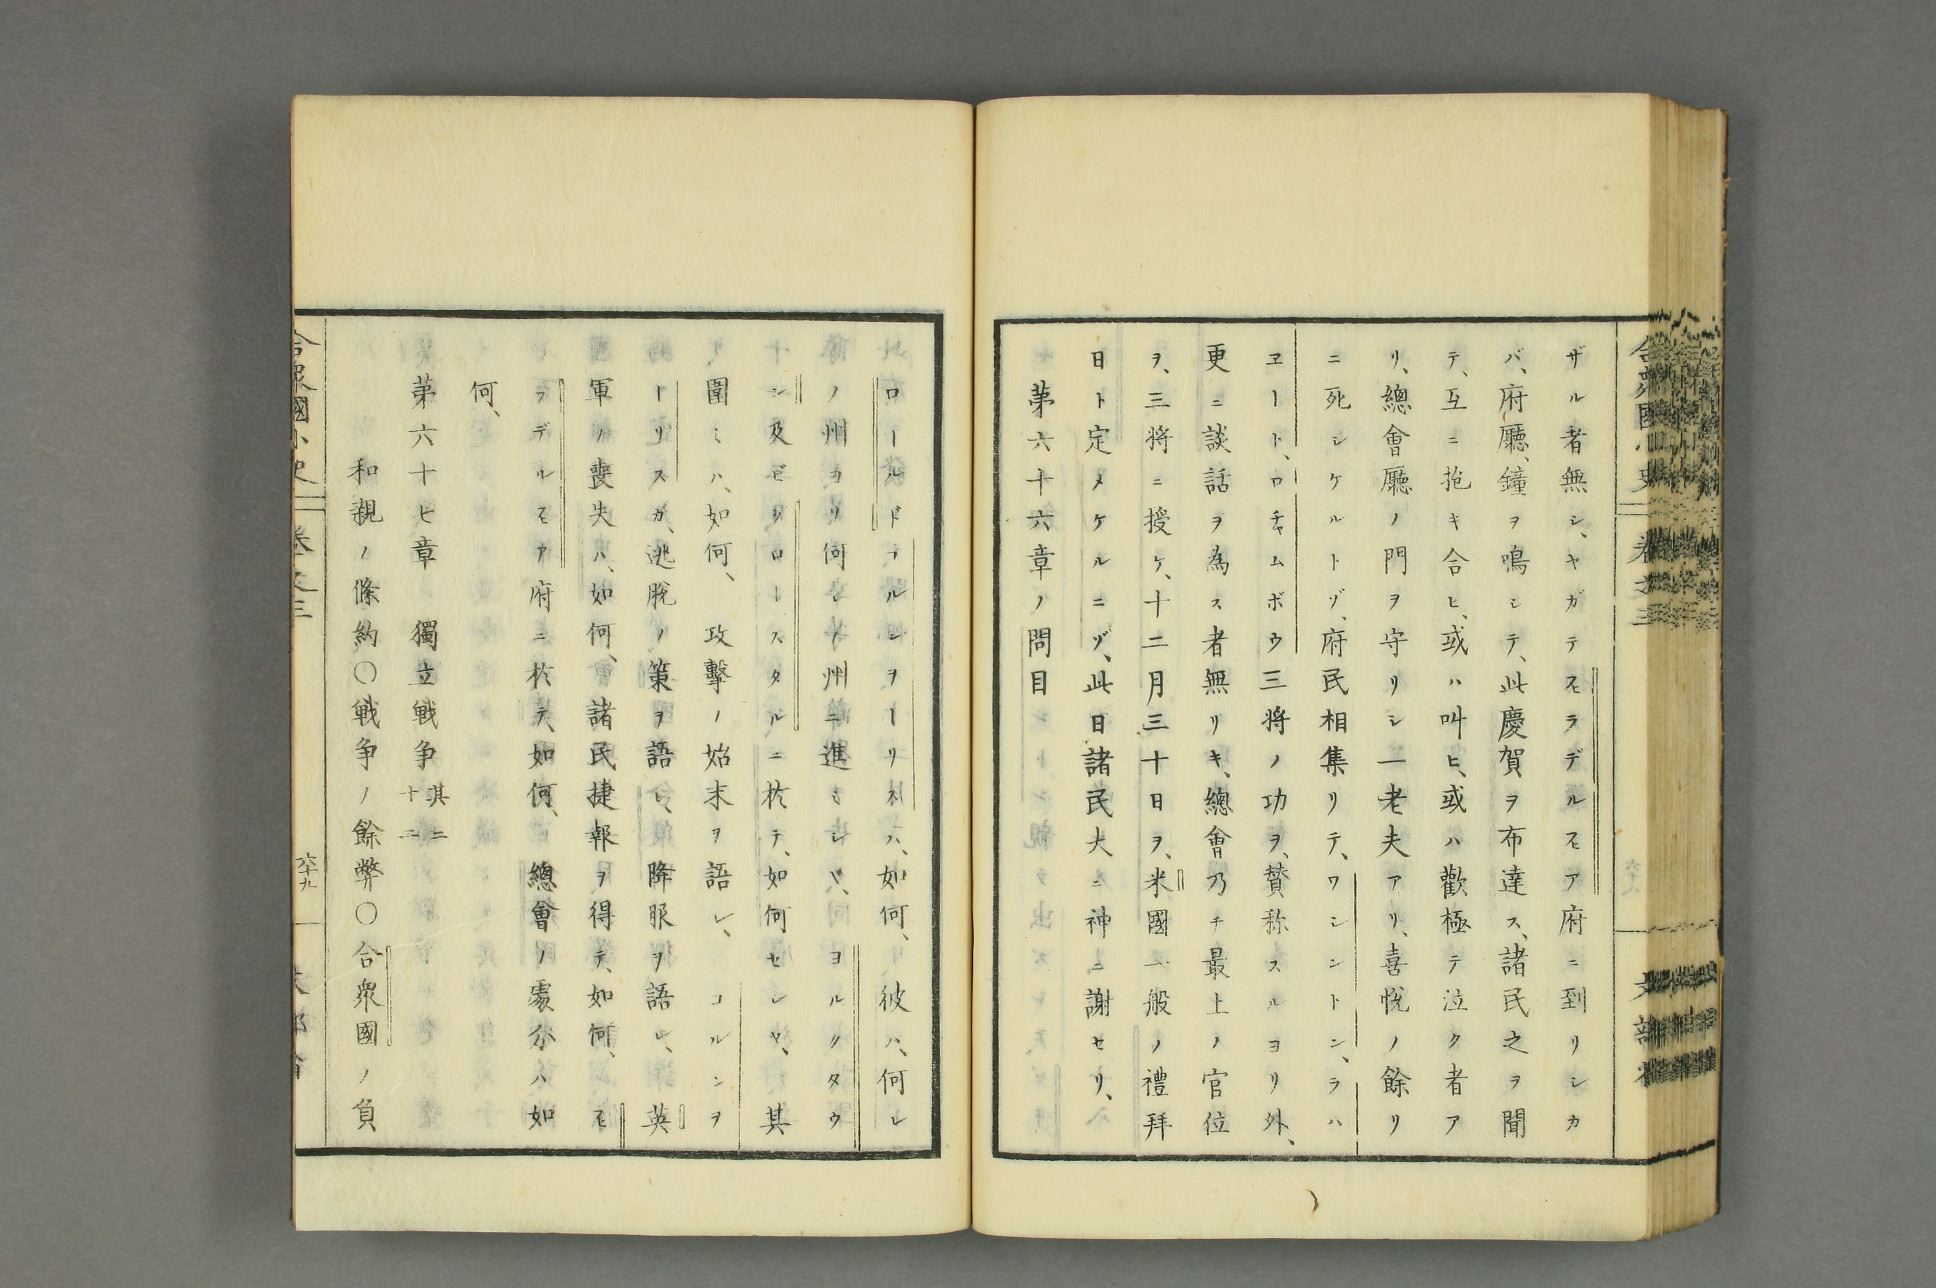 合衆國小史 卷之三 六十八 文部省
ザル者無シ、ヤガテヒラデルヒア府ニ到リシカ
バ、府廳、鐘ヲ鳴シテ、此慶賀ヲ布達ス、諸民之ヲ聞
テ、互ニ抱キ合ヒ、或ハ叫ヒ、或ハ歡極テ泣ク者ア
リ、總會廳ノ門ヲ守リシ一老夫アリ、喜悅ノ餘リ
ニ死シケルトゾ、府民相集リテ、ワシントン、ラハ
ヱート、ロチャムボウ三將ノ功ヲ、賛称スルヨリ外、
更ニ談話ヲ為ス者無リキ、總會乃チ最上ノ官位
ヲ、三將ニ授ケ、十二月三十日ヲ、米國一般ノ禮拜
日ト定メケルニゾ、此日諸民大ニ神ニ謝セリ、
第六十六章ノ問目
ロールドヲルンヲーリスハ、如何、彼ハ、何レ
ノ州ヨリ何レノ州ニ進ミシヤ、ヨルクタウ
ン及ビグローースタルニ於テ、如何セシヤ、其
圍ミハ、如何、攻擊ノ始末ヲ語レ、コルンヲ
ーリスガ、逃脫ノ策ヲ語レ、降服ヲ語レ、英
軍ノ喪失ハ、如何、諸民捷報ヲ得テ、如何、ヒ
ラデルヒア府ニ於テ、如何、總會ノ處分ハ如
何、
第六十七章 獨立戰爭 其二十二
和親ノ條約〇戰爭ノ餘弊〇合衆國ノ負
合衆國小史 卷之三 六十九 文部省